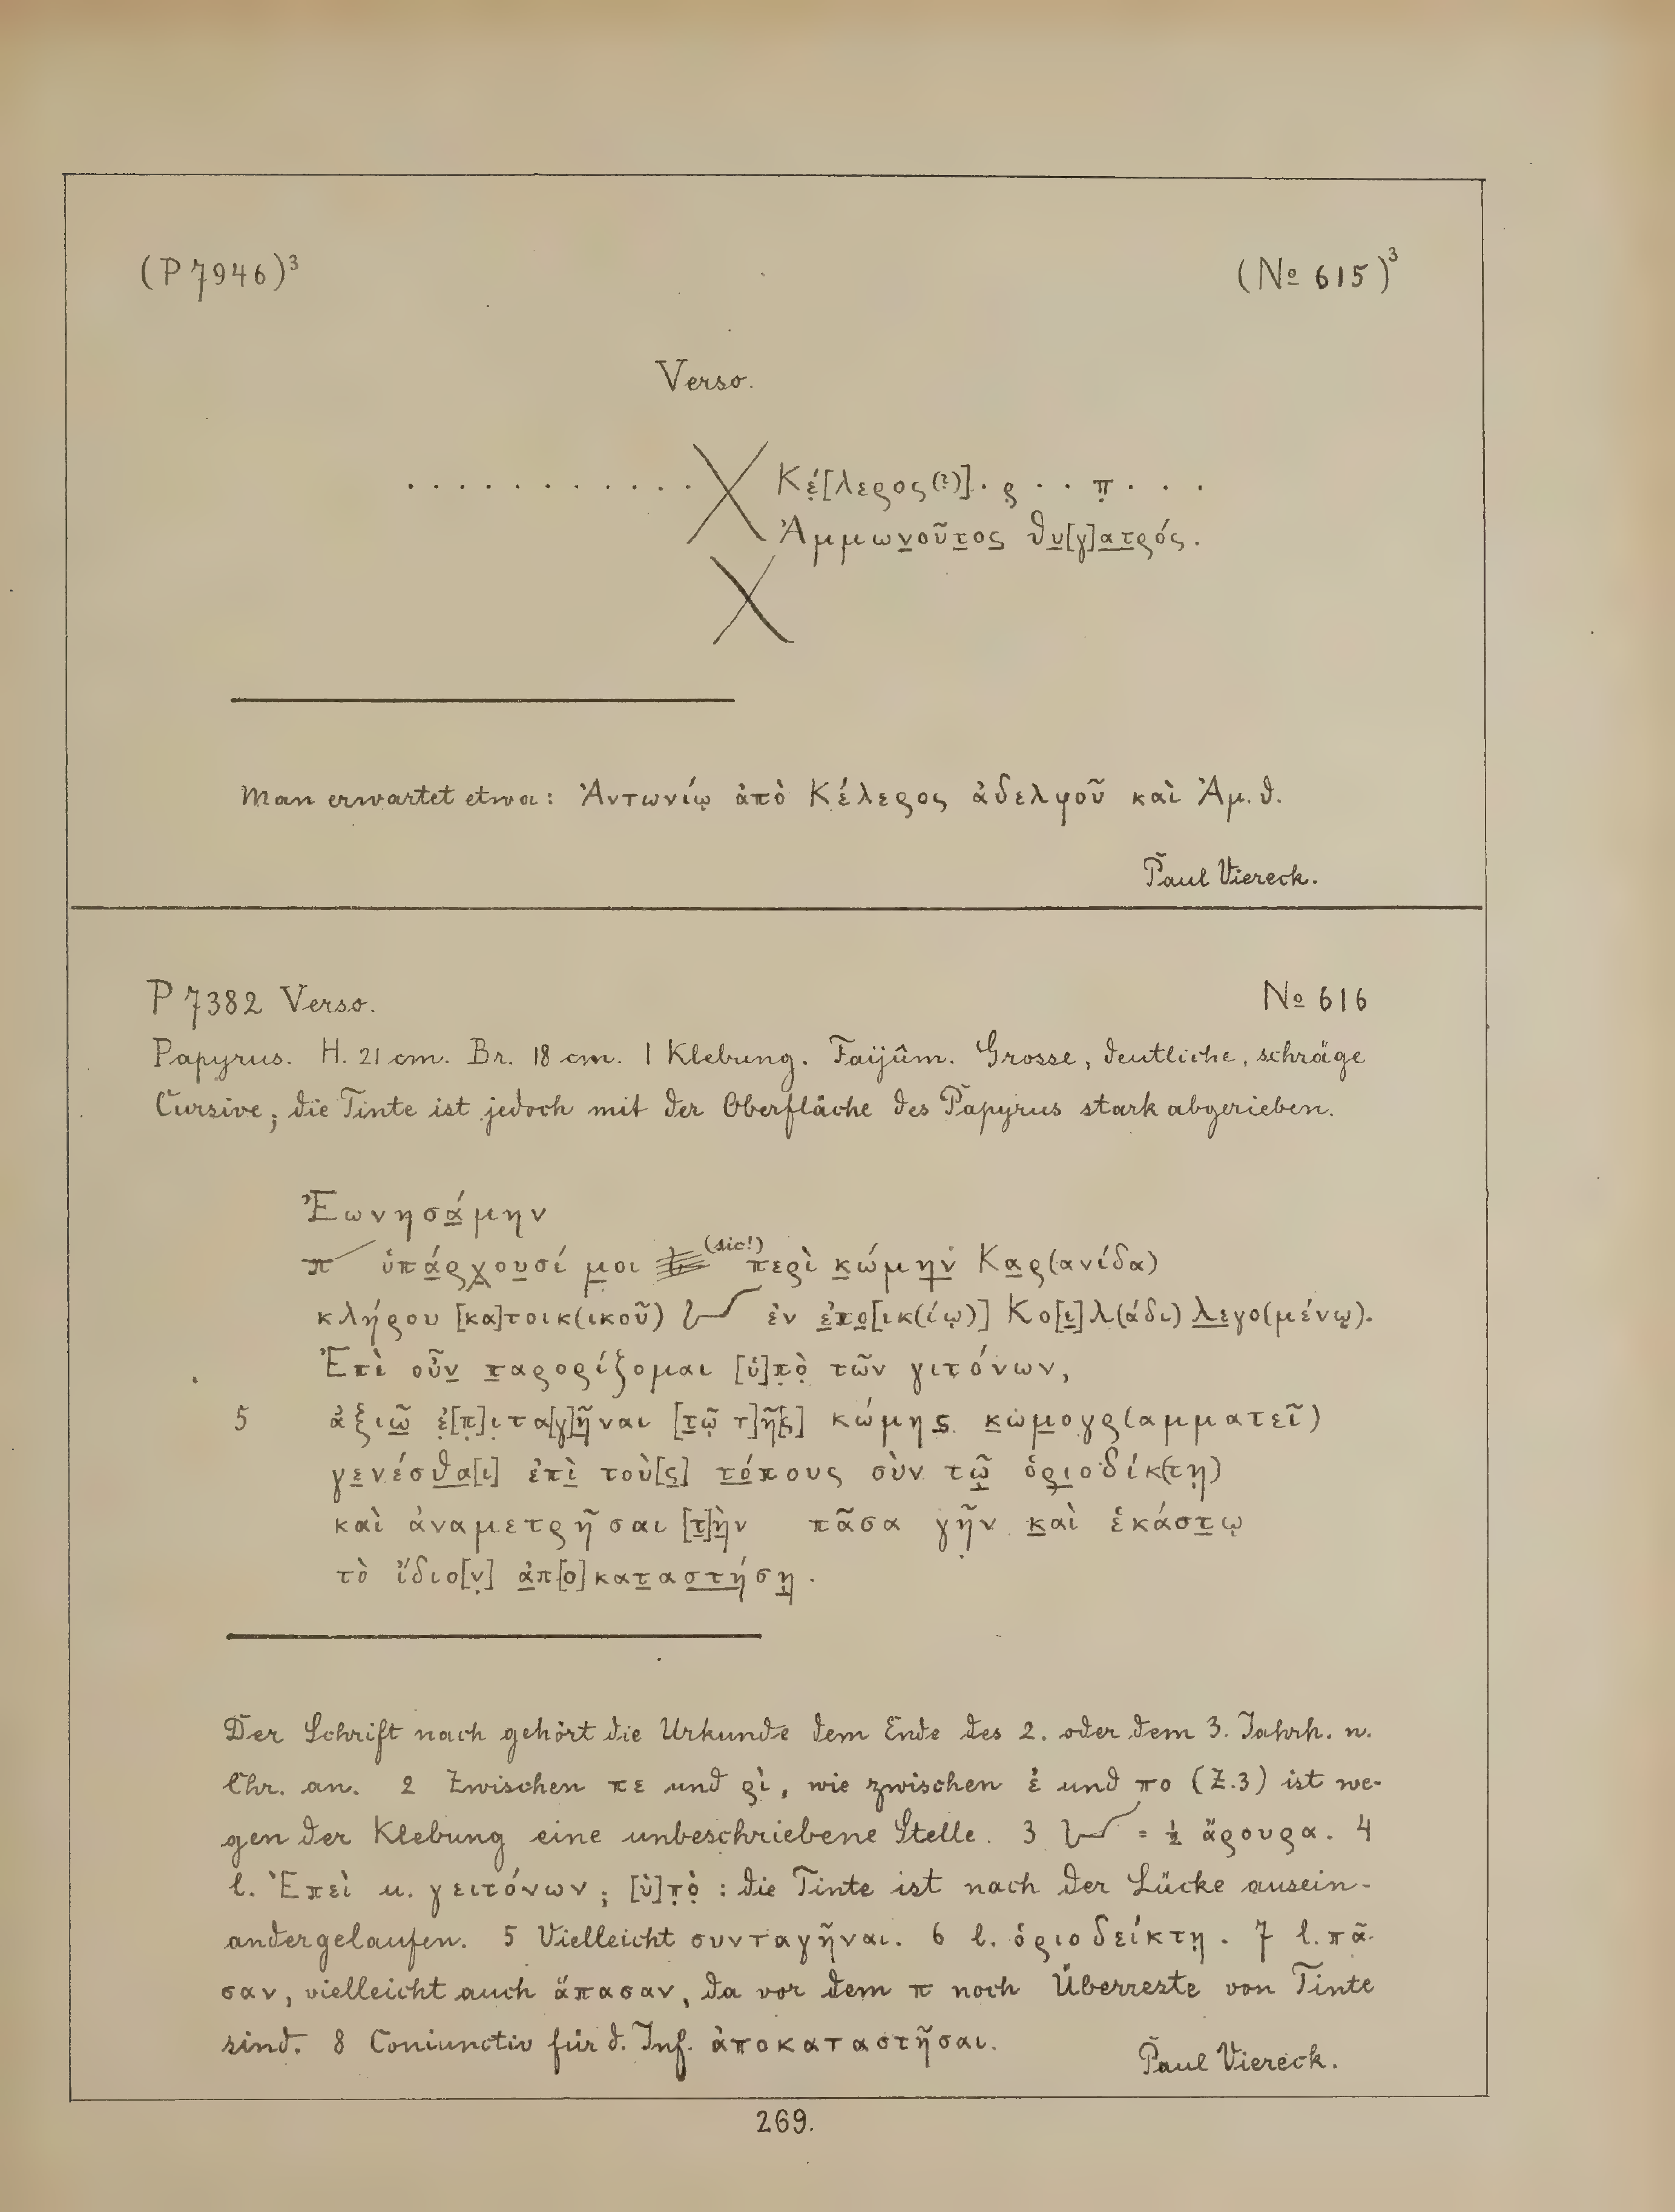 (P 7946)³ (No 615)³
Verso.
. . . . . . . . . . . Κέ̣[λερος(?)]. ρ̣ . . π̣ . . .
Ἀμμων̲οῦτ̲ος̲ θυ̲[γ]α̲τ̲ρός.
Man erwartet etwa: Ἀντωνίῳ ἀπὸ Κέλερος ἀδελφοῦ καὶ Ἀμ. θ.
Paul Viereck.
P 7382 Verso. No 616
Papyrus. H. 21 cm. Br. 18 cm. 1 Klebung. Faijûm. Grosse, deutliche, schräge
Cursive; die Tinte ist jedoch mit der Oberfläche des Papyrus stark abgerieben.
Ἐωνησά̲μην
π ὑπά̲ρχο̲υ̲σί μ̲οι (sic!) περὶ κ̲ώμη̲ν̲ Κα̲ρ(ανίδα)
κλήρου [κα]τοικ(ικοῦ) ἐν ἐ̲π̲ο̲[ικ(ίῳ)] Κο[ι̲]λ(άδι) λ̲ε̲γο(μένῳ).
Ἐπὶ οὖν̲ π̲αρορίζομαι [ὑ]π̣ὸ̣ τῶν γιτόνων,
5 ἀξιῶ̲ ἐ̣[π̣]ι̣τα[γ]ῆ̲ναι [τ̲ῷ τ]ῆ[ς] κώμης̲ κ̲ωμ̲ογρ(αμματεῖ)
γε̲νέσθ̲α̲[ι] ἐπὶ̲ τοὺ[ς̲] τ̲ό̲πους σὺν τῷ̲ ὁρι̲οδίκ(τῃ)
καὶ ἀναμετρῆσαι [τ̲]ὴ̲ν πᾶσα γῆν κ̲αὶ ἑκάστ̲ῳ
τὸ ἴδιο[ν̣] ἀ̲π[ο]κατ̲ασ̲τ̲ή̲σῃ̲.
Der Schrift nach gehört die Urkunde dem Ende des 2. oder dem 3. Jahrh. n.
Chr. an. 2 Zwischen πε und ρὶ, wie zwischen ἐ und πο (Z.3) ist we-
gen der Klebung eine unbeschriebene Stelle. 3 = ½ ἄρουρα. 4
l. Ἐπεὶ u. γειτόνων; [ὑ]π̣ὸ̣: die Tinte ist nach der Lücke ausein-
andergelaufen. 5 Vielleicht συνταγῆναι. 6 l. ὁριοδείκτῃ. 7 l. πᾶ-
σαν, vielleicht auch ἅπασαν, da vor dem π noch Überreste von Tinte
sind. 8 Coniunctiv für d. Inf. ἀποκαταστῆσαι.
Paul Viereck.
269.